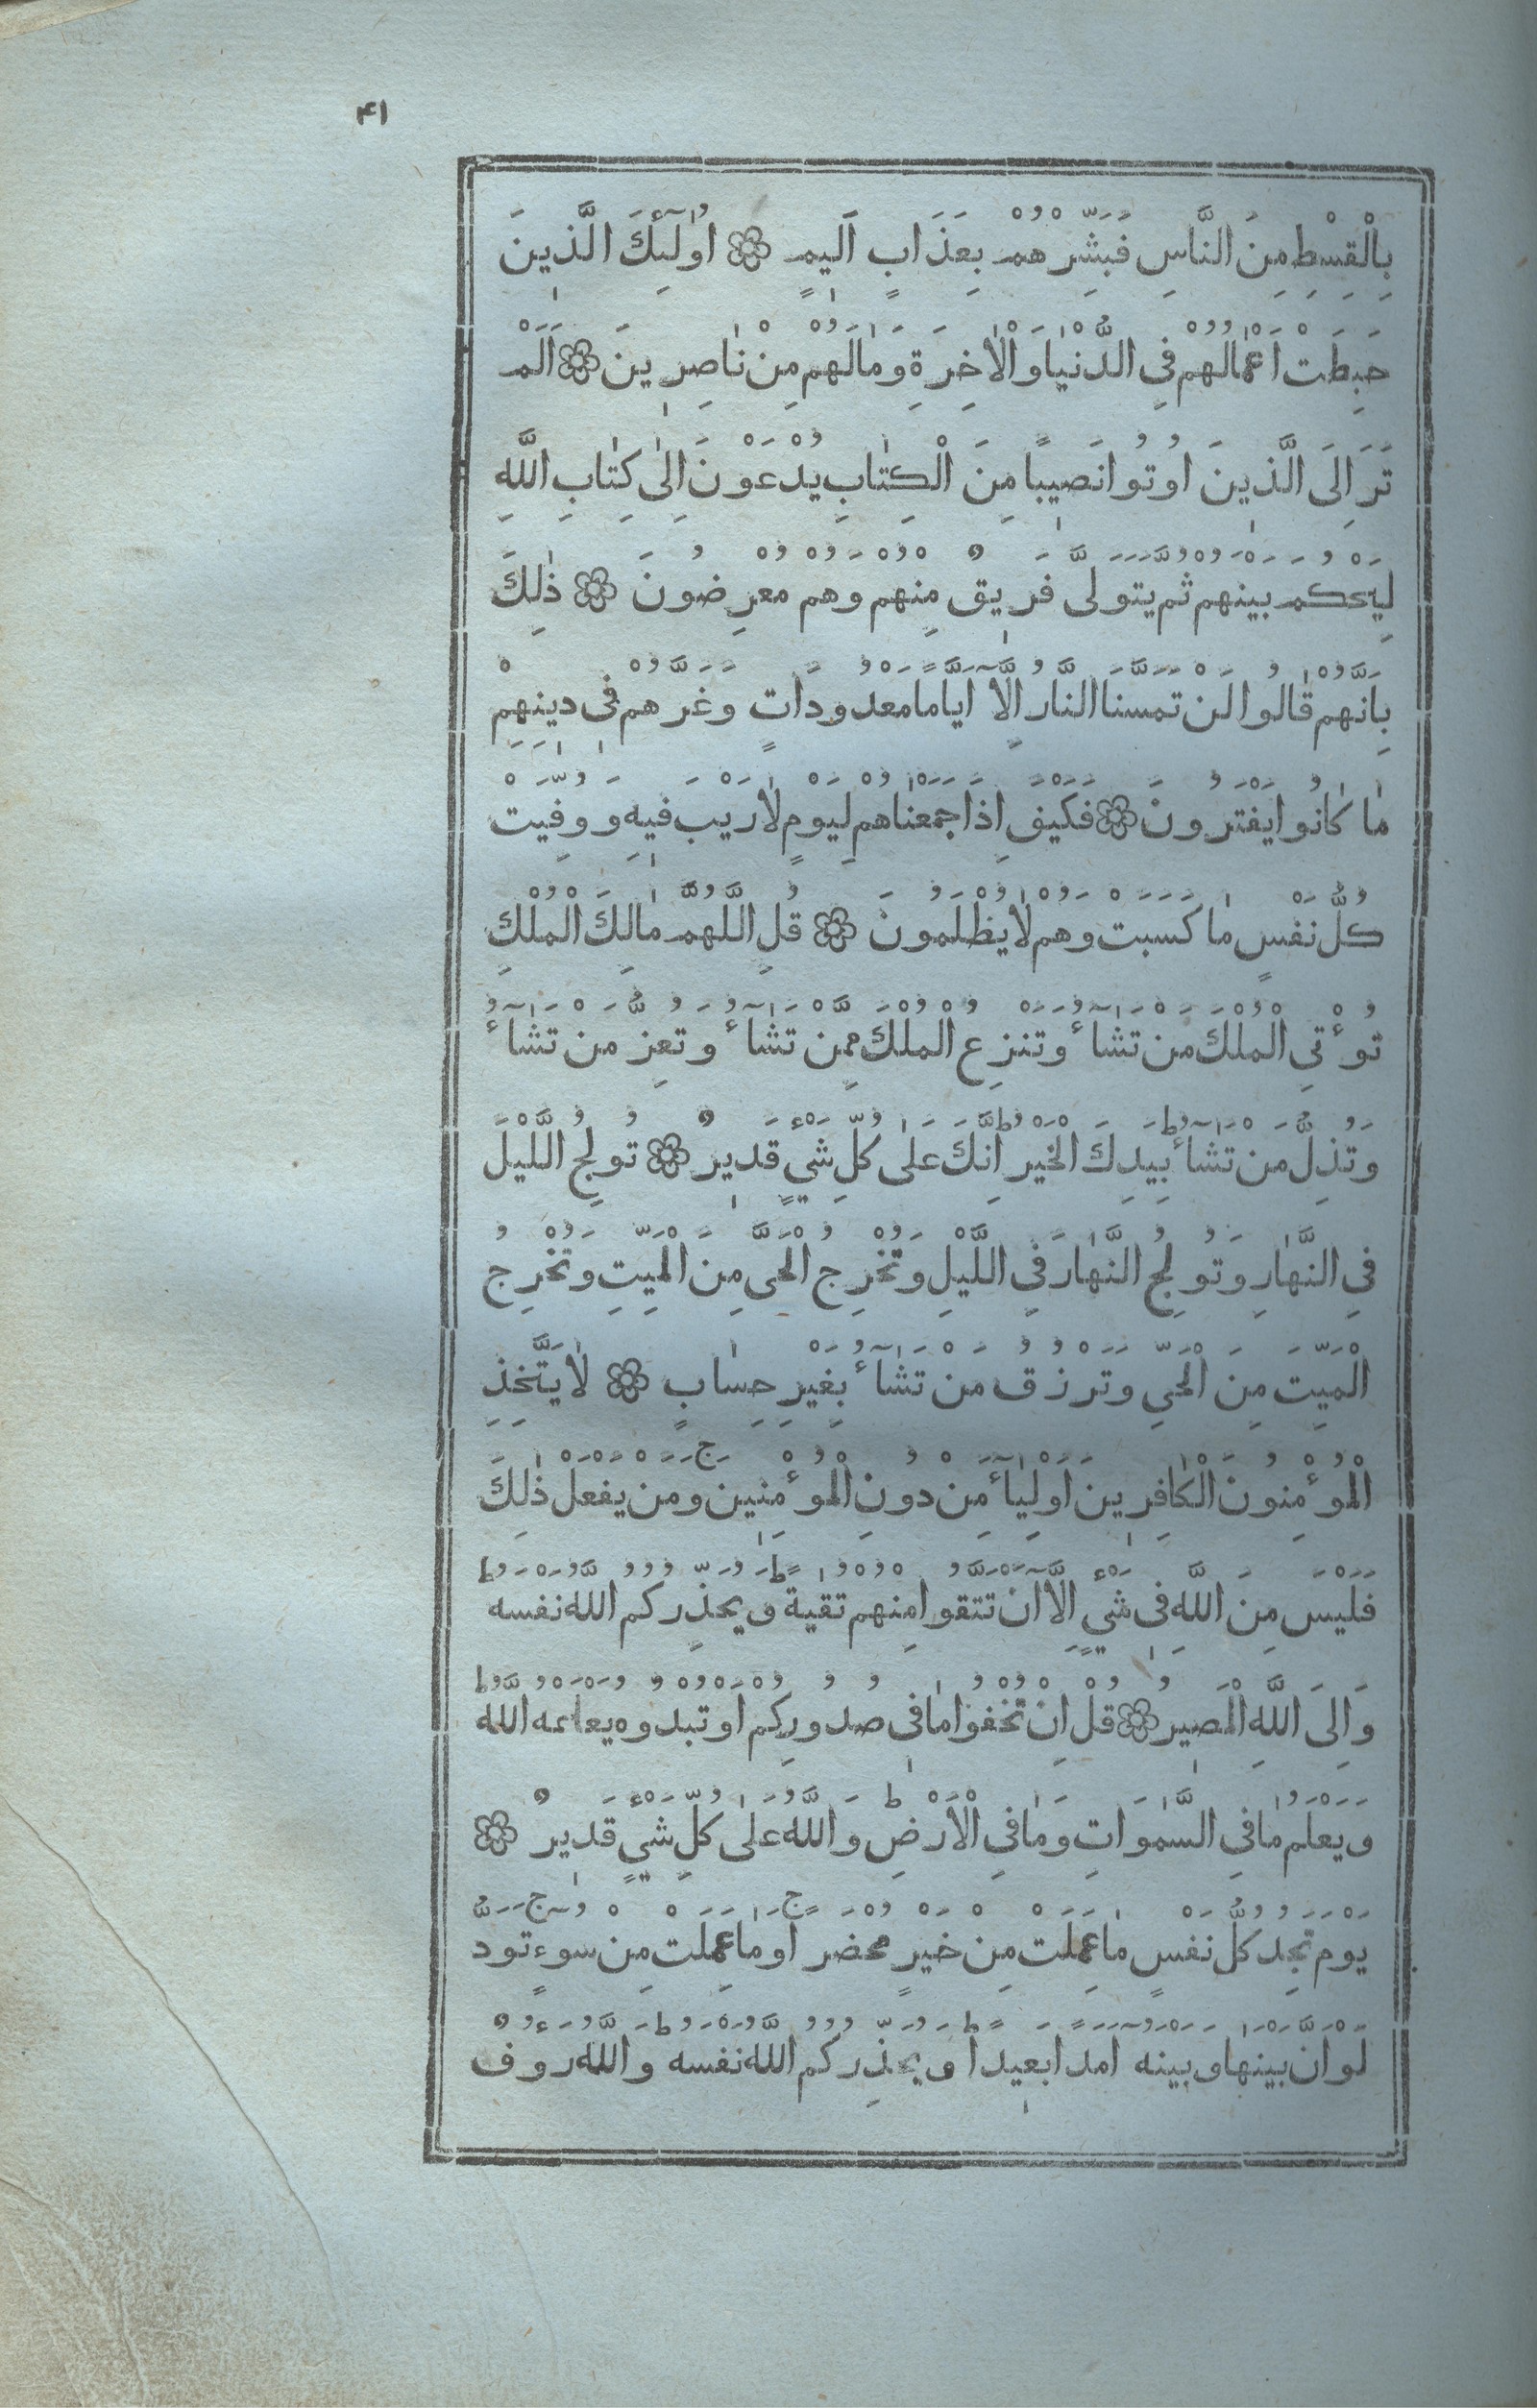 ۴۱
بِالْقِسْطِ مِنَ النَّاسِ فَبَشِّرْهُمْ بِعَذَابٍ اَلِيمٍ ۞ اُولٰٓئِكَ الَّذِينَ
حَبِطَتْ اَعْمَالُهُمْ فِي الدُّنْيَا وَالْاٰخِرَةِ وَمَا لَهُمْ مِنْ نَاصِرِينَ ۞ اَلَمْ
تَرَ اِلَى الَّذِينَ اُوتُوا نَصِيبًا مِنَ الْكِتَابِ يُدْعَوْنَ اِلٰى كِتَابِ اللَّهِ
لِيَحْكُمَ بَيْنَهُمْ ثُمَّ يَتَوَلَّى فَرِيقٌ مِنْهُمْ وَهُمْ مُعْرِضُونَ ۞ ذٰلِكَ
بِاَنَّهُمْ قَالُوا لَنْ تَمَسَّنَا النَّارُ اِلَّآ اَيَّامًا مَعْدُودَاتٍ وَغَرَّهُمْ فِي دِينِهِمْ
مَا كَانُوا يَفْتَرُونَ ۞ فَكَيْفَ اِذَا جَمَعْنَاهُمْ لِيَوْمٍ لَا رَيْبَ فِيهِ وَوُفِّيَتْ
كُلُّ نَفْسٍ مَا كَسَبَتْ وَهُمْ لَا يُظْلَمُونَ ۞ قُلِ اللَّهُمَّ مَالِكَ الْمُلْكِ
تُؤْتِي الْمُلْكَ مَنْ تَشَآءُ وَتَنْزِعُ الْمُلْكَ مِمَّنْ تَشَآءُ وَتُعِزُّ مَنْ تَشَآءُ
وَتُذِلُّ مَنْ تَشَآءُ ط بِيَدِكَ الْخَيْرُ ط اِنَّكَ عَلٰى كُلِّ شَيْءٍ قَدِيرٌ ۞ تُولِجُ اللَّيْلَ
فِي النَّهَارِ وَتُولِجُ النَّهَارَ فِي اللَّيْلِ وَتُخْرِجُ الْحَيَّ مِنَ الْمَيِّتِ وَتُخْرِجُ
الْمَيِّتَ مِنَ الْحَيِّ وَتَرْزُقُ مَنْ تَشَآءُ بِغَيْرِ حِسَابٍ ۞ لَا يَتَّخِذِ
الْمُؤْمِنُونَ الْكَافِرِينَ اَوْلِيَآءَ مِنْ دُونِ الْمُؤْمِنِينَ ج وَمَنْ يَفْعَلْ ذٰلِكَ
فَلَيْسَ مِنَ اللَّهِ فِي شَيْءٍ اِلَّآ اَنْ تَتَّقُوا مِنْهُمْ تُقٰيةً ط وَيُحَذِّرُكُمُ اللَّهُ نَفْسَهُ ط
وَاِلَى اللَّهِ الْمَصِيرُ ۞ قُلْ اِنْ تُخْفُوا مَا فِي صُدُورِكُمْ اَوْ تُبْدُوهُ يَعْلَمْهُ اللَّهُ ط
وَيَعْلَمُ مَا فِي السَّمٰوَاتِ وَمَا فِي الْاَرْضِ ط وَاللَّهُ عَلٰى كُلِّ شَيْءٍ قَدِيرٌ ۞
يَوْمَ تَجِدُ كُلُّ نَفْسٍ مَا عَمِلَتْ مِنْ خَيْرٍ مُحْضَرًا ج وَمَا عَمِلَتْ مِنْ سُوٓءٍ ج تَوَدُّ
لَوْ اَنَّ بَيْنَهَا وَبَيْنَهُٓ اَمَدًا بَعِيدًا ط وَيُحَذِّرُكُمُ اللَّهُ نَفْسَهُ ط وَاللَّهُ رَءُوفٌ